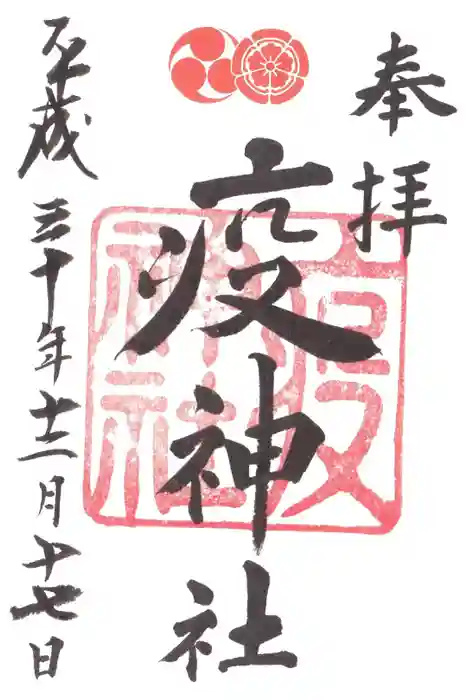 奉拝
疫神社
平成三十年十二月十七日
疫神社